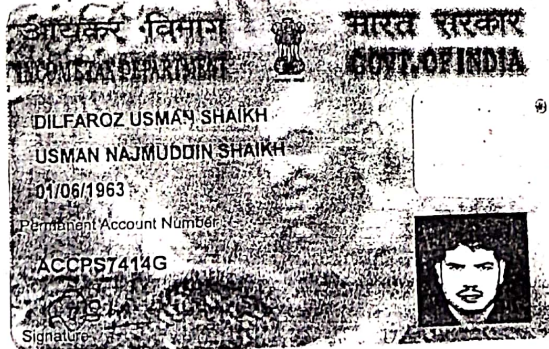 आयकर विभाग
INCOME TAX DEPARTMENT
भारत सरकार
GOVT. OF INDIA
DILFAROZ USMAN SHAIKH
USMAN NAJMUDDIN SHAIKH
01/06/1963
Permanent Account Number
ACCPS7414G
Signature